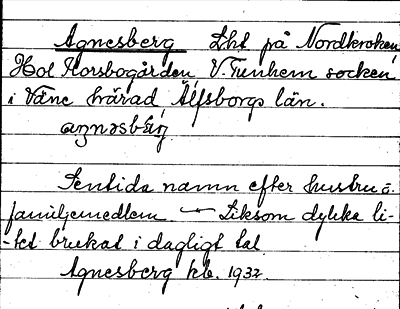 Agnesberg Lht på Nordkroken,
Hol Korsbogården, V. Tunhem socken
i Väne härad Älfsborgs län.
aŋnəsbærj
Sentida namn efter hustru o.
familjemedlem. — Liksom dylika li-
-tet brukat i dagligt tal
Agnesberg kb. 1932